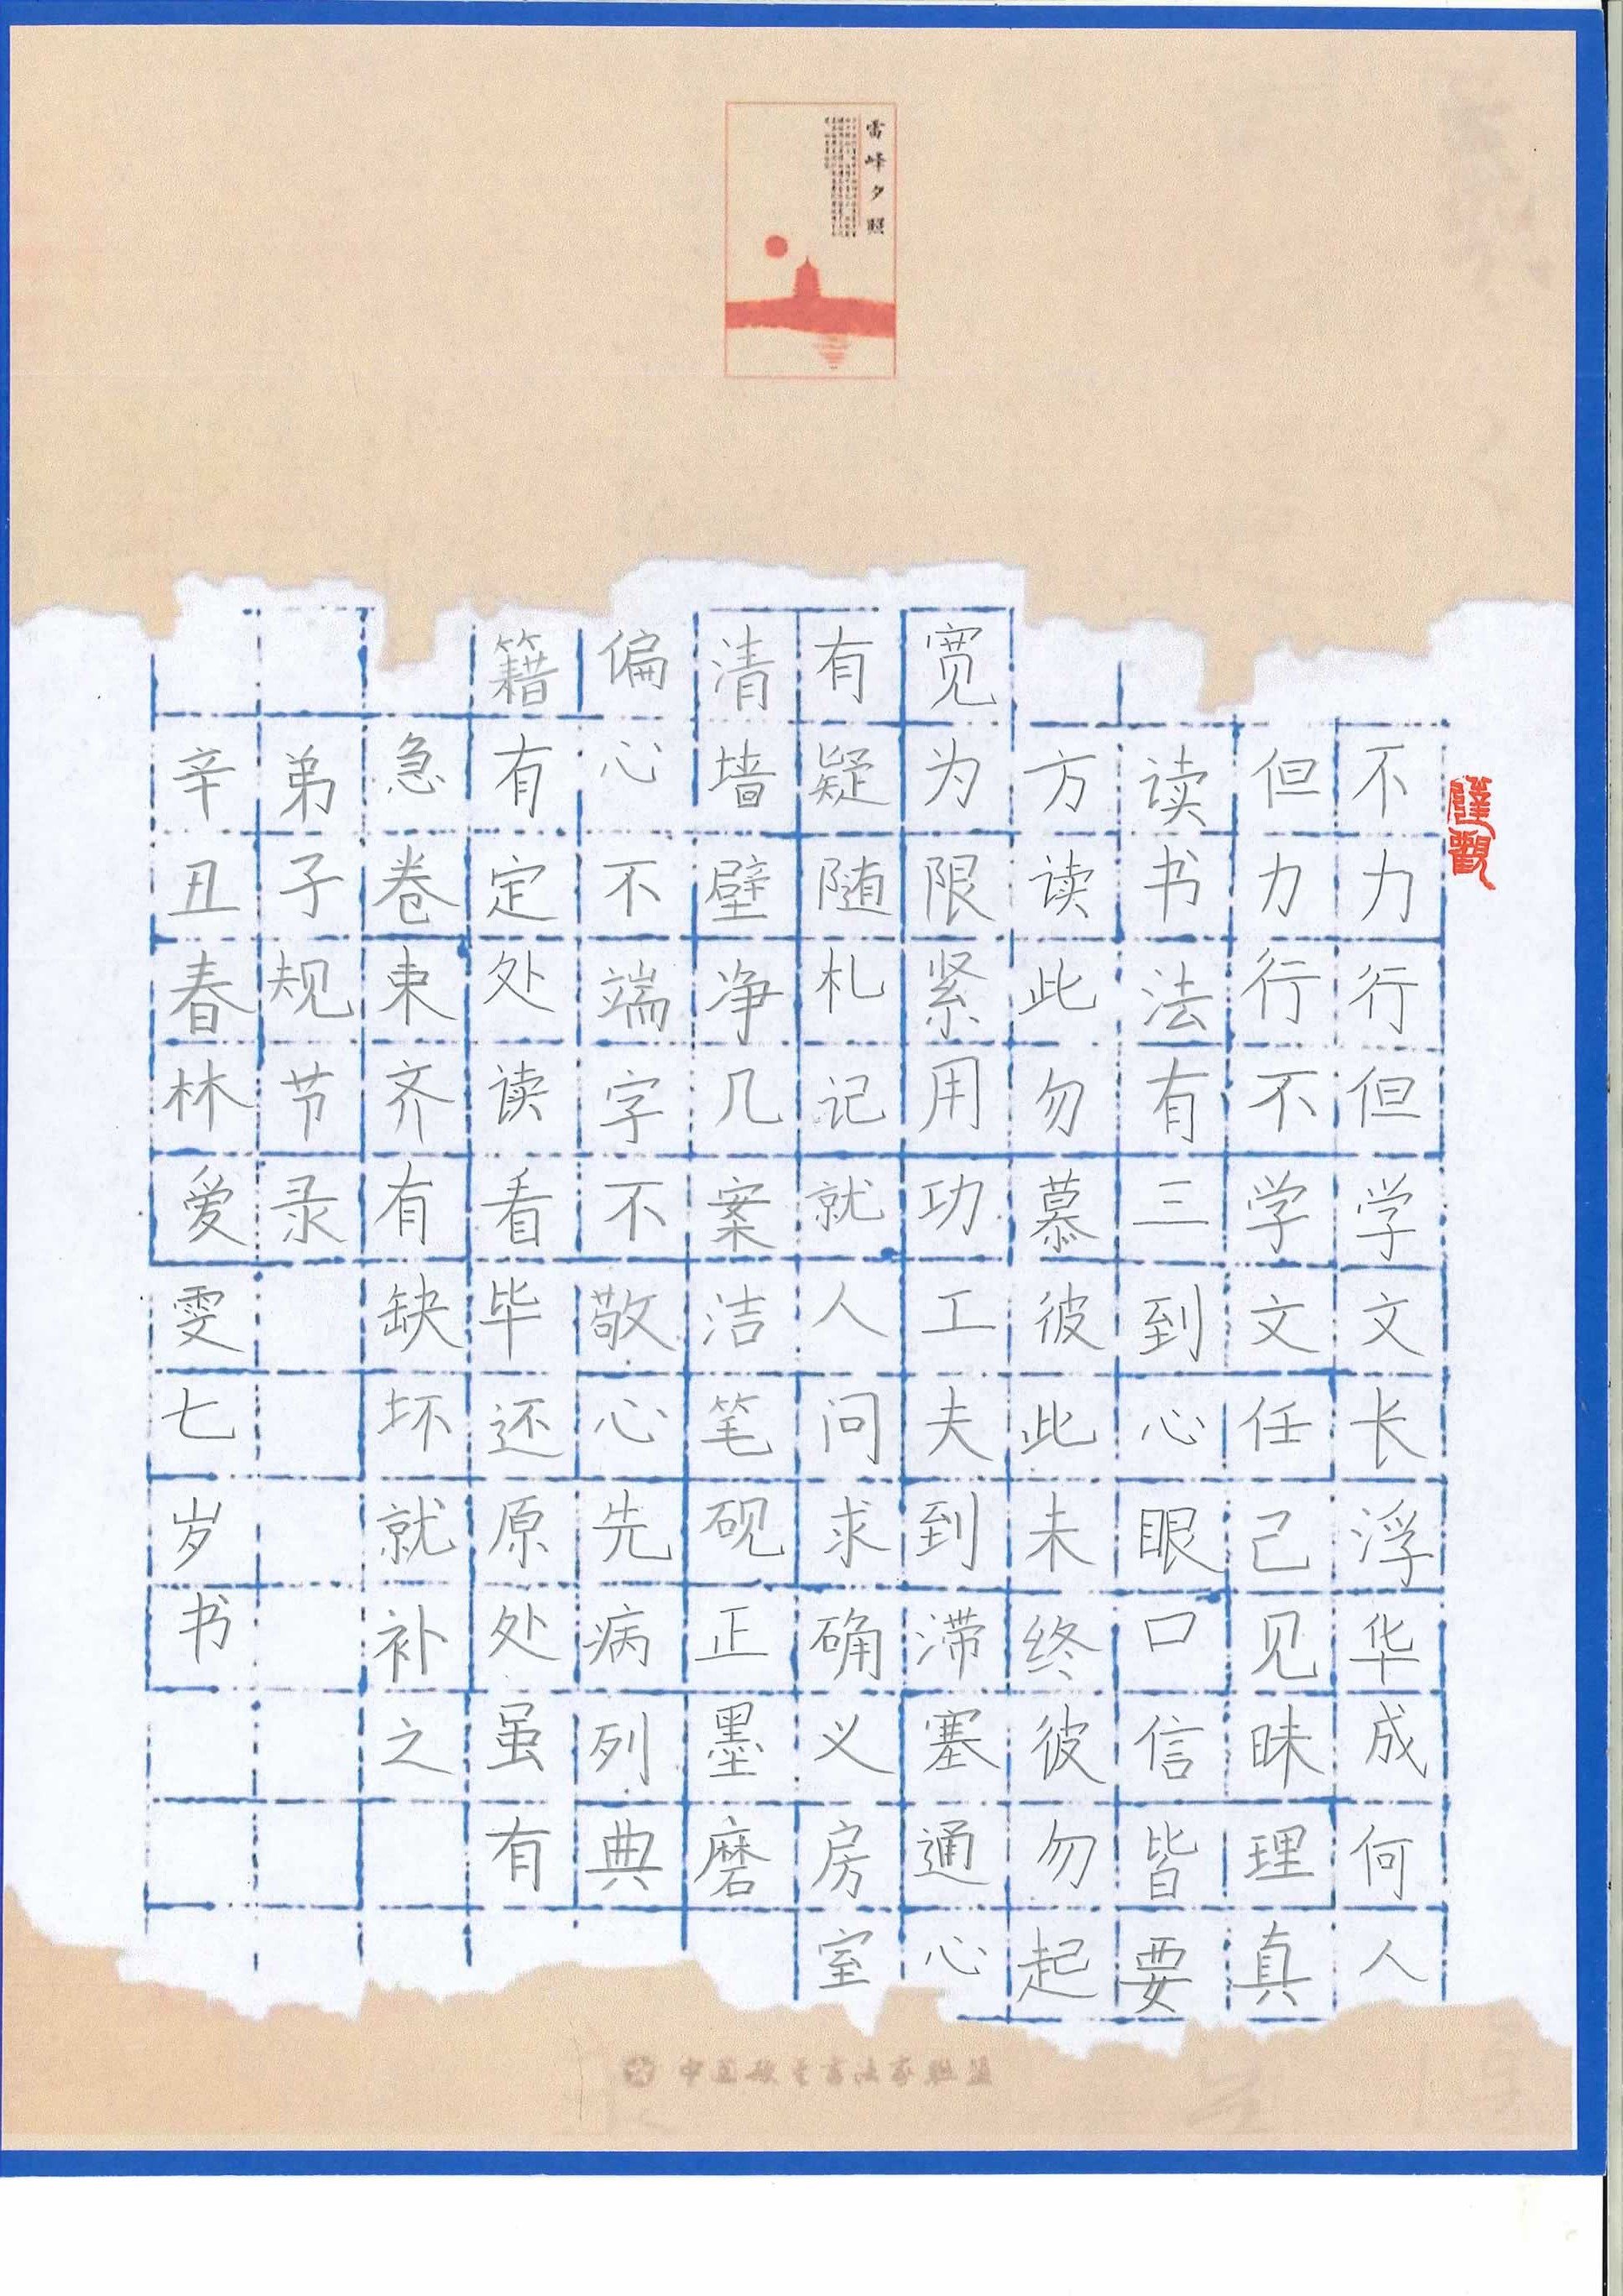 雷峰夕照
不力行但学文长浮华成何人
但力行不学文任己见昧理真
读书法有三到心眼口信皆要
方读此勿慕彼此未终彼勿起
宽为限紧用功工夫到滞塞通心
有疑随札记就人问求确义房室
清墙壁净几案洁笔砚正墨磨
偏心不端字不敬心先病列典
籍有定处读看毕还原处虽有
急卷束齐有缺坏就补之
弟子规节录
辛丑春林爱雯七岁书